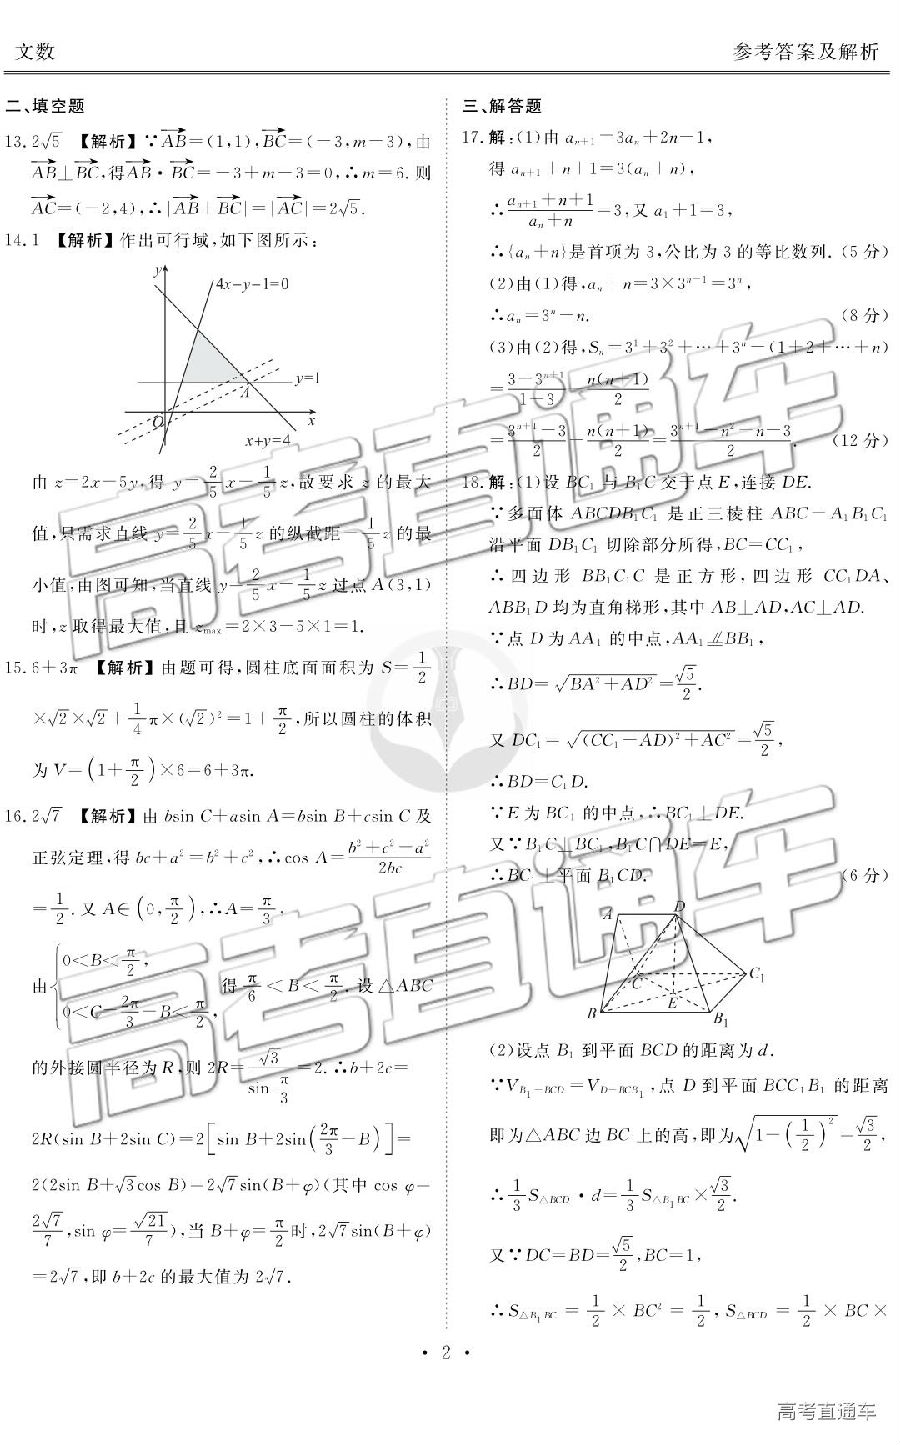 文数
参考答案及解析
二、填空题
13. 2√5 【解析】∵AB=(1,1),BC=(-3,m-3),由
AB⊥BC,得AB·BC=-3+m-3=0,∴m=6.则
AC=(-2,4),∴|AB+BC|=|AC|=2√5.
14. 1 【解析】作出可行域,如下图所示:
y
4x-y-1=0
y=1
A
O
x
x+y=4
由 z=2x-5y,得 y=2/5x-1/5z,故要求 z 的最大
值,只需求直线 y=2/5x-1/5z 的纵截距-1/5z 的最
小值,由图可知,当直线 y=2/5x-1/5z 过点 A(3,1)
时,z 取得最大值,且 zmax=2×3-5×1=1.
15. 6+3π 【解析】由题可得,圆柱底面面积为 S=1/2
×√2×√2+1/4π×(√2)²=1+π/2,所以圆柱的体积
为 V=(1+π/2)×6=6+3π.
16. 2√7 【解析】由 bsin C+asin A=bsin B+csin C 及
正弦定理,得 bc+a²=b²+c²,∴cos A=(b²+c²-a²)/2bc
=1/2.又 A∈(0,π/2),∴A=π/3,
由{0<B<π/2, 0<C=2π/3-B<π/2, 得 π/6<B<π/2,设△ABC
的外接圆半径为 R,则 2R=√3/sin π/3=2.∴b+2c=
2R(sin B+2sin C)=2[sin B+2sin(2π/3-B)]=
2(2sin B+√3cos B)=2√7sin(B+φ)(其中 cos φ=
2√7/7,sin φ=√21/7),当 B+φ=π/2时,2√7sin(B+φ)
=2√7,即 b+2c 的最大值为 2√7.
三、解答题
17. 解:(1)由 aₙ₊₁=3aₙ+2n-1,
得 aₙ₊₁+n+1=3(aₙ+n),
∴(aₙ₊₁+n+1)/(aₙ+n)=3,又 a₁+1=3,
∴{aₙ+n}是首项为 3,公比为 3 的等比数列. (5 分)
(2)由(1)得,aₙ+n=3×3ⁿ⁻¹=3ⁿ,
∴aₙ=3ⁿ-n. (8 分)
(3)由(2)得,Sₙ=3¹+3²+…+3ⁿ-(1+2+…+n)
=(3-3ⁿ⁺¹)/(1-3)-n(n+1)/2
=(3ⁿ⁺¹-3)/2-n(n+1)/2=(3ⁿ⁺¹-n²-n-3)/2. (12 分)
18. 解:(1)设 BC₁ 与 B₁C 交于点 E,连接 DE.
∵多面体 ABCDB₁C₁ 是正三棱柱 ABC-A₁B₁C₁
沿平面 DB₁C₁ 切除部分所得,BC=CC₁,
∴四边形 BB₁C₁C 是正方形,四边形 CC₁DA、
ABB₁D 均为直角梯形,其中 AB⊥AD,AC⊥AD.
∵点 D 为 AA₁ 的中点,AA₁⫽BB₁,
∴BD=√(BA²+AD²)=√5/2.
又 DC₁=√((CC₁-AD)²+AC²)=√5/2,
∴BD=C₁D.
∵E 为 BC₁ 的中点,∴BC₁⊥DE.
又∵B₁C⊥BC₁,B₁C∩DE=E,
∴BC₁⊥平面 B₁CD. (6 分)
A
D
C
C₁
E
B
B₁
(2)设点 B₁ 到平面 BCD 的距离为 d.
∵V B₁-BCD=V D-BCB₁,点 D 到平面 BCC₁B₁ 的距离
即为△ABC 边 BC 上的高,即为√(1-(1/2)²)=√3/2,
∴1/3S△BCD·d=1/3S△B₁BC×√3/2.
又∵DC=BD=√5/2,BC=1,
∴S△B₁BC=1/2×BC²=1/2,S△BCD=1/2×BC×
·2·
高考直通车
高考直通车
高考直通车